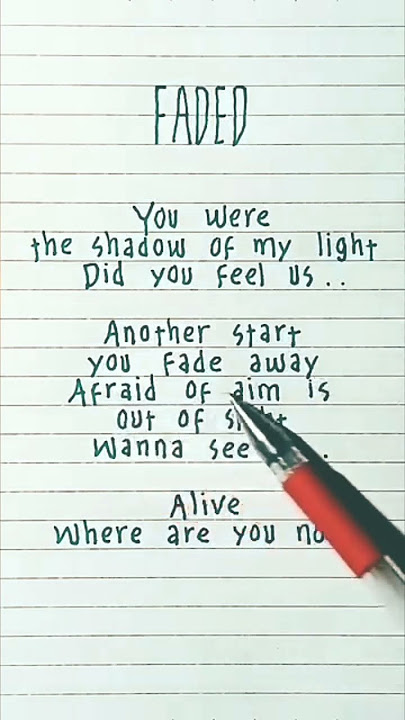 FADED
You were
the shadow of my light
Did you feel us..
Another start
you fade away
Afraid of aim is
out of
Wanna see
Alive
Where are you